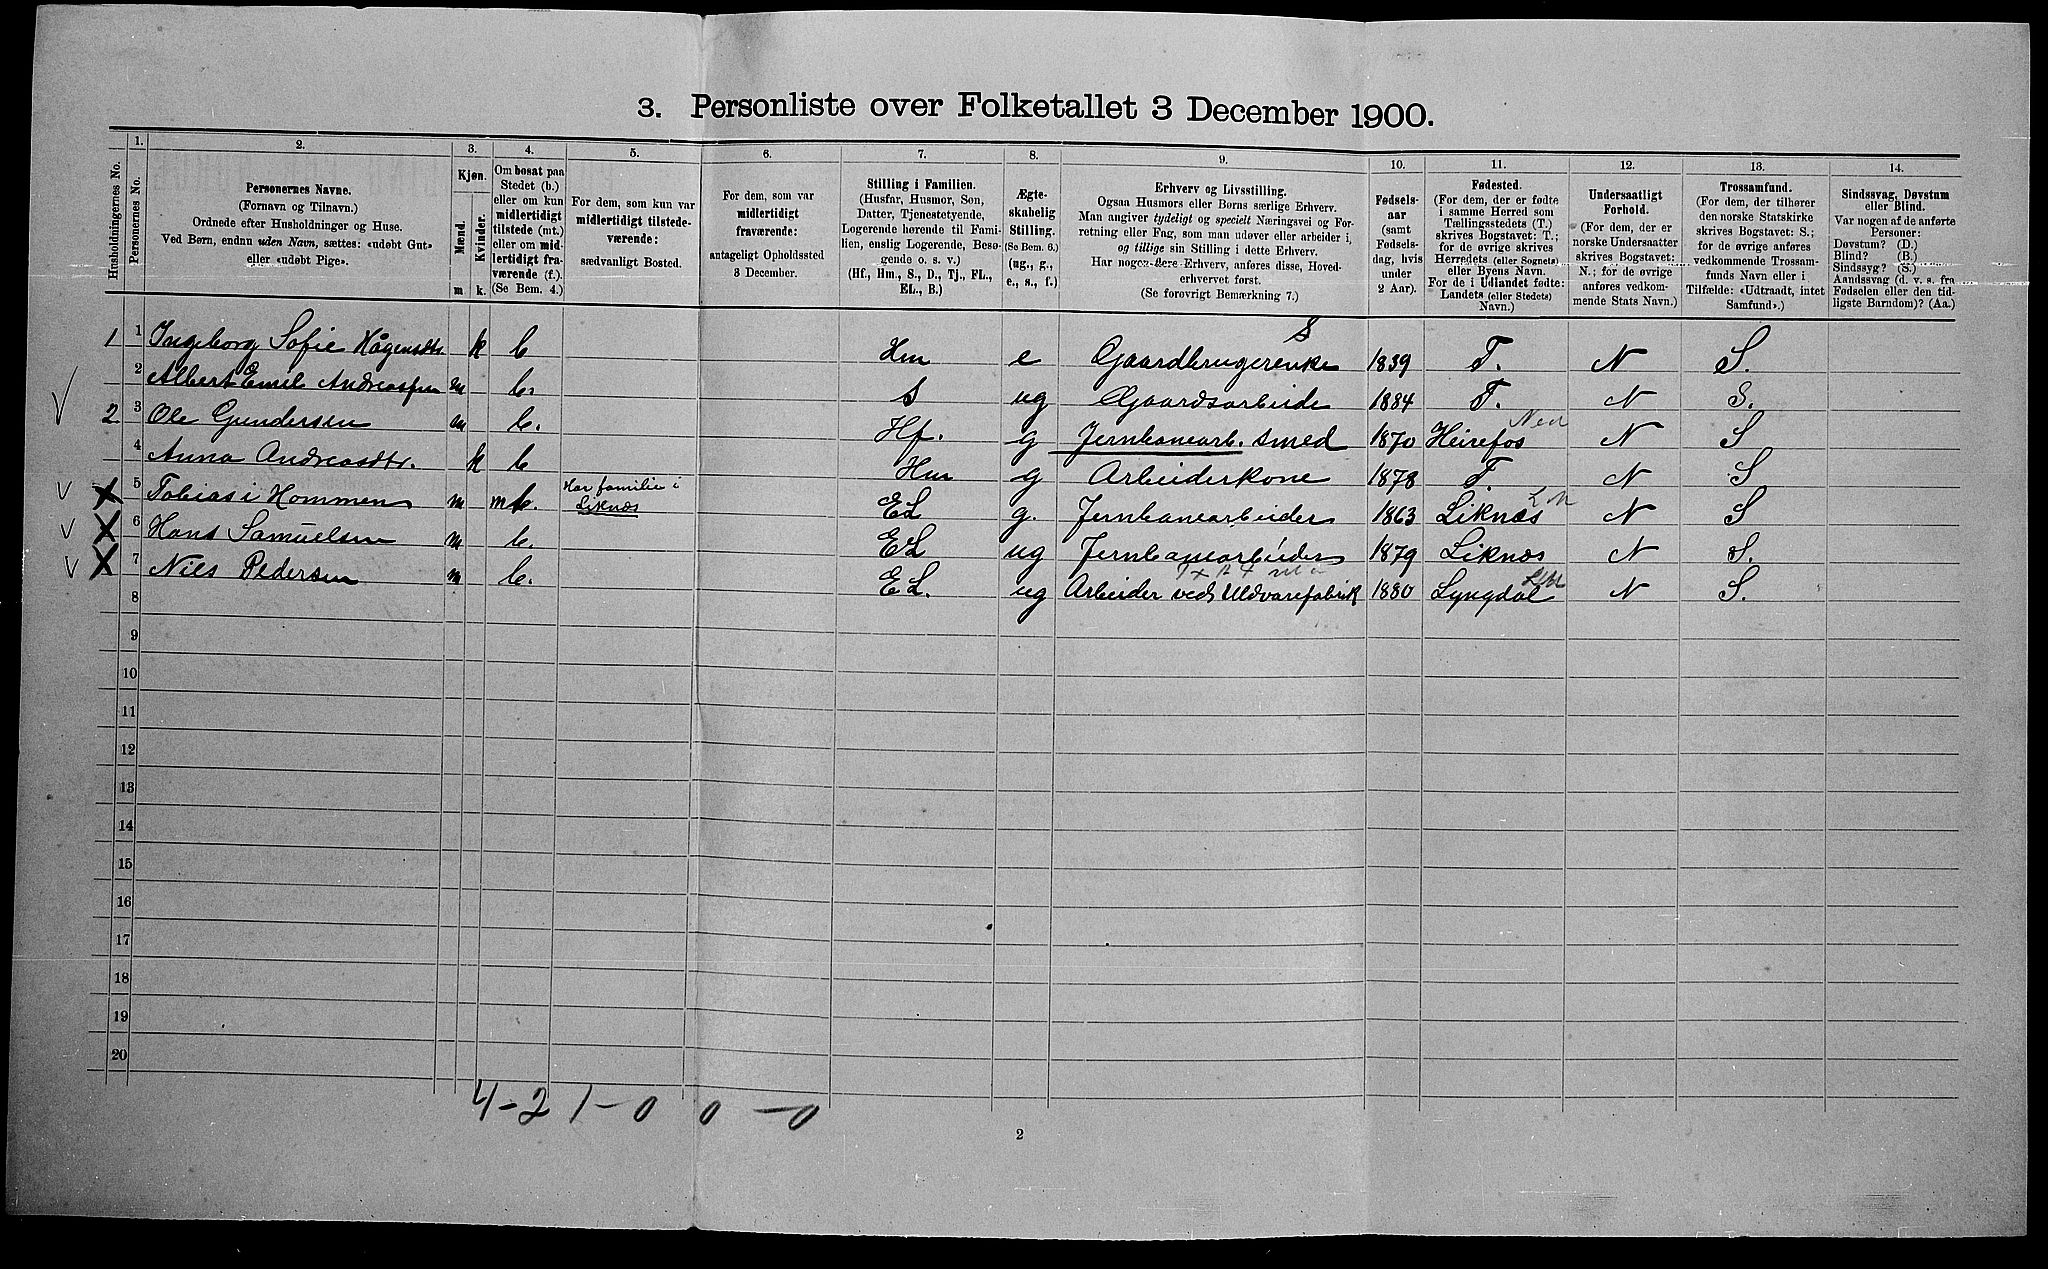 3. Personliste over Folketallet 3 December 1900.
Husholdningernes No.
1.
Personernes No.
2.
Personernes Navne.
(Fornavn og Tilnavn.)
Ordnede efter Husholdninger og Huse.
Ved Børn, endnu uden Navn, sættes: «udøbt Gut»
eller «udøbt Pige».
3.
Kjøn.
Mænd.
Kvinder.
m
k.
4.
Om bosat paa
Stedet (b.)
eller om kun
midlertidigt
tilstede (mt.)
eller om mid-
lertidigt fra-
værende (f.).
(Se Bem. 4.)
5.
For dem, som kun var
midlertidigt tilstede-
værende:
sædvanligt Bosted.
6.
For dem, som var
midlertidigt
fraværende:
antageligt Opholdssted
3 December.
7.
Stilling i Familien.
(Husfar, Husmor, Søn,
Datter, Tjenestetyende,
Logerende hørende til Fami-
lien, enslig Logerende, Besø-
gende o. s. v.)
(Hf., Hm., S., D., Tj., FL.,
EL., B.)
8.
Ægte-
skabelig
Stilling.
(Se Bem. 6.)
(ug., g.,
e., s., f.)
9.
Erhverv og Livsstilling.
Ogsaa Husmors eller Børns særlige Erhverv.
Man angiver tydeligt og specielt Næringsvei og For-
retning eller Fag, som man udøver eller arbeider i,
og tillige sin Stilling i dette Erhverv.
Har nogen flere Erhverv, anføres disse, Hoved-
erhvervet først.
(Se forøvrigt Bemærkning 7.)
10.
Fødsels-
aar
(samt
Fødsels-
dag, hvis
under
2 Aar).
11.
Fødested.
(For dem, der er fødte
i samme Herred som
Tællingsstedets (T.)
skrives Bogstavet: T.;
for de øvrige skrives
Herredets (eller Sognets)
eller Byens Navn.
For de i Udlandet fødte:
Landets (eller Stedets)
Navn.)
12.
Undersaatligt
Forhold.
(For dem, der er
norske Undersaatter
skrives Bogstavet:
N.; for de øvrige
anføres vedkom-
mende Stats Navn.)
13.
Trossamfund.
(For dem, der tilhører
den norske Statskirke
skrives Bogstavet: S.;
for de øvrige anføres
vedkommende Trossam-
funds Navn eller i
Tilfælde: «Udtraadt, intet
Samfund».)
14.
Sindssvag, Døvstum
eller Blind.
Var nogen af de anførte
Personer:
Døvstum? (D.)
Blind? (B.)
Sindssyg? (S.)
Aandssvag (d. v. s. fra
Fødselen eller den tid-
ligste Barndom)? (Aa.)
1 1 Ingeborg Sofie Hågensdtr k b Hm e Gaardbrugerenke S 1839 T. N S.
2 Albert Emil Andreassen m b. S ug Gaardsarbeide 1884 T. N S.
2 3 Ole Gundersen m b. Hf. g Jernbanearb. smed 1870 Heirefos Ned N S
4 Anna Andreasdtr. k b Hm g Arbeiderkone 1878 T. N S
5 Tobias i Hommen m mt b. Har familie i Liknæs EL g. Jernbanearbeider 1863 Liknæs L M N S
6 Hans Samuelsen m b. EL ug Jernbanearbeider 1879 Liknæs N S.
7 Nils Pedersen m b. EL. ug Arbeider ved Uldvarefabrik 1880 Lyngdal L M N S.
8
9
10
11
12
13
14
15
16
17
18
19
20
4-2 1-0 0-0
2